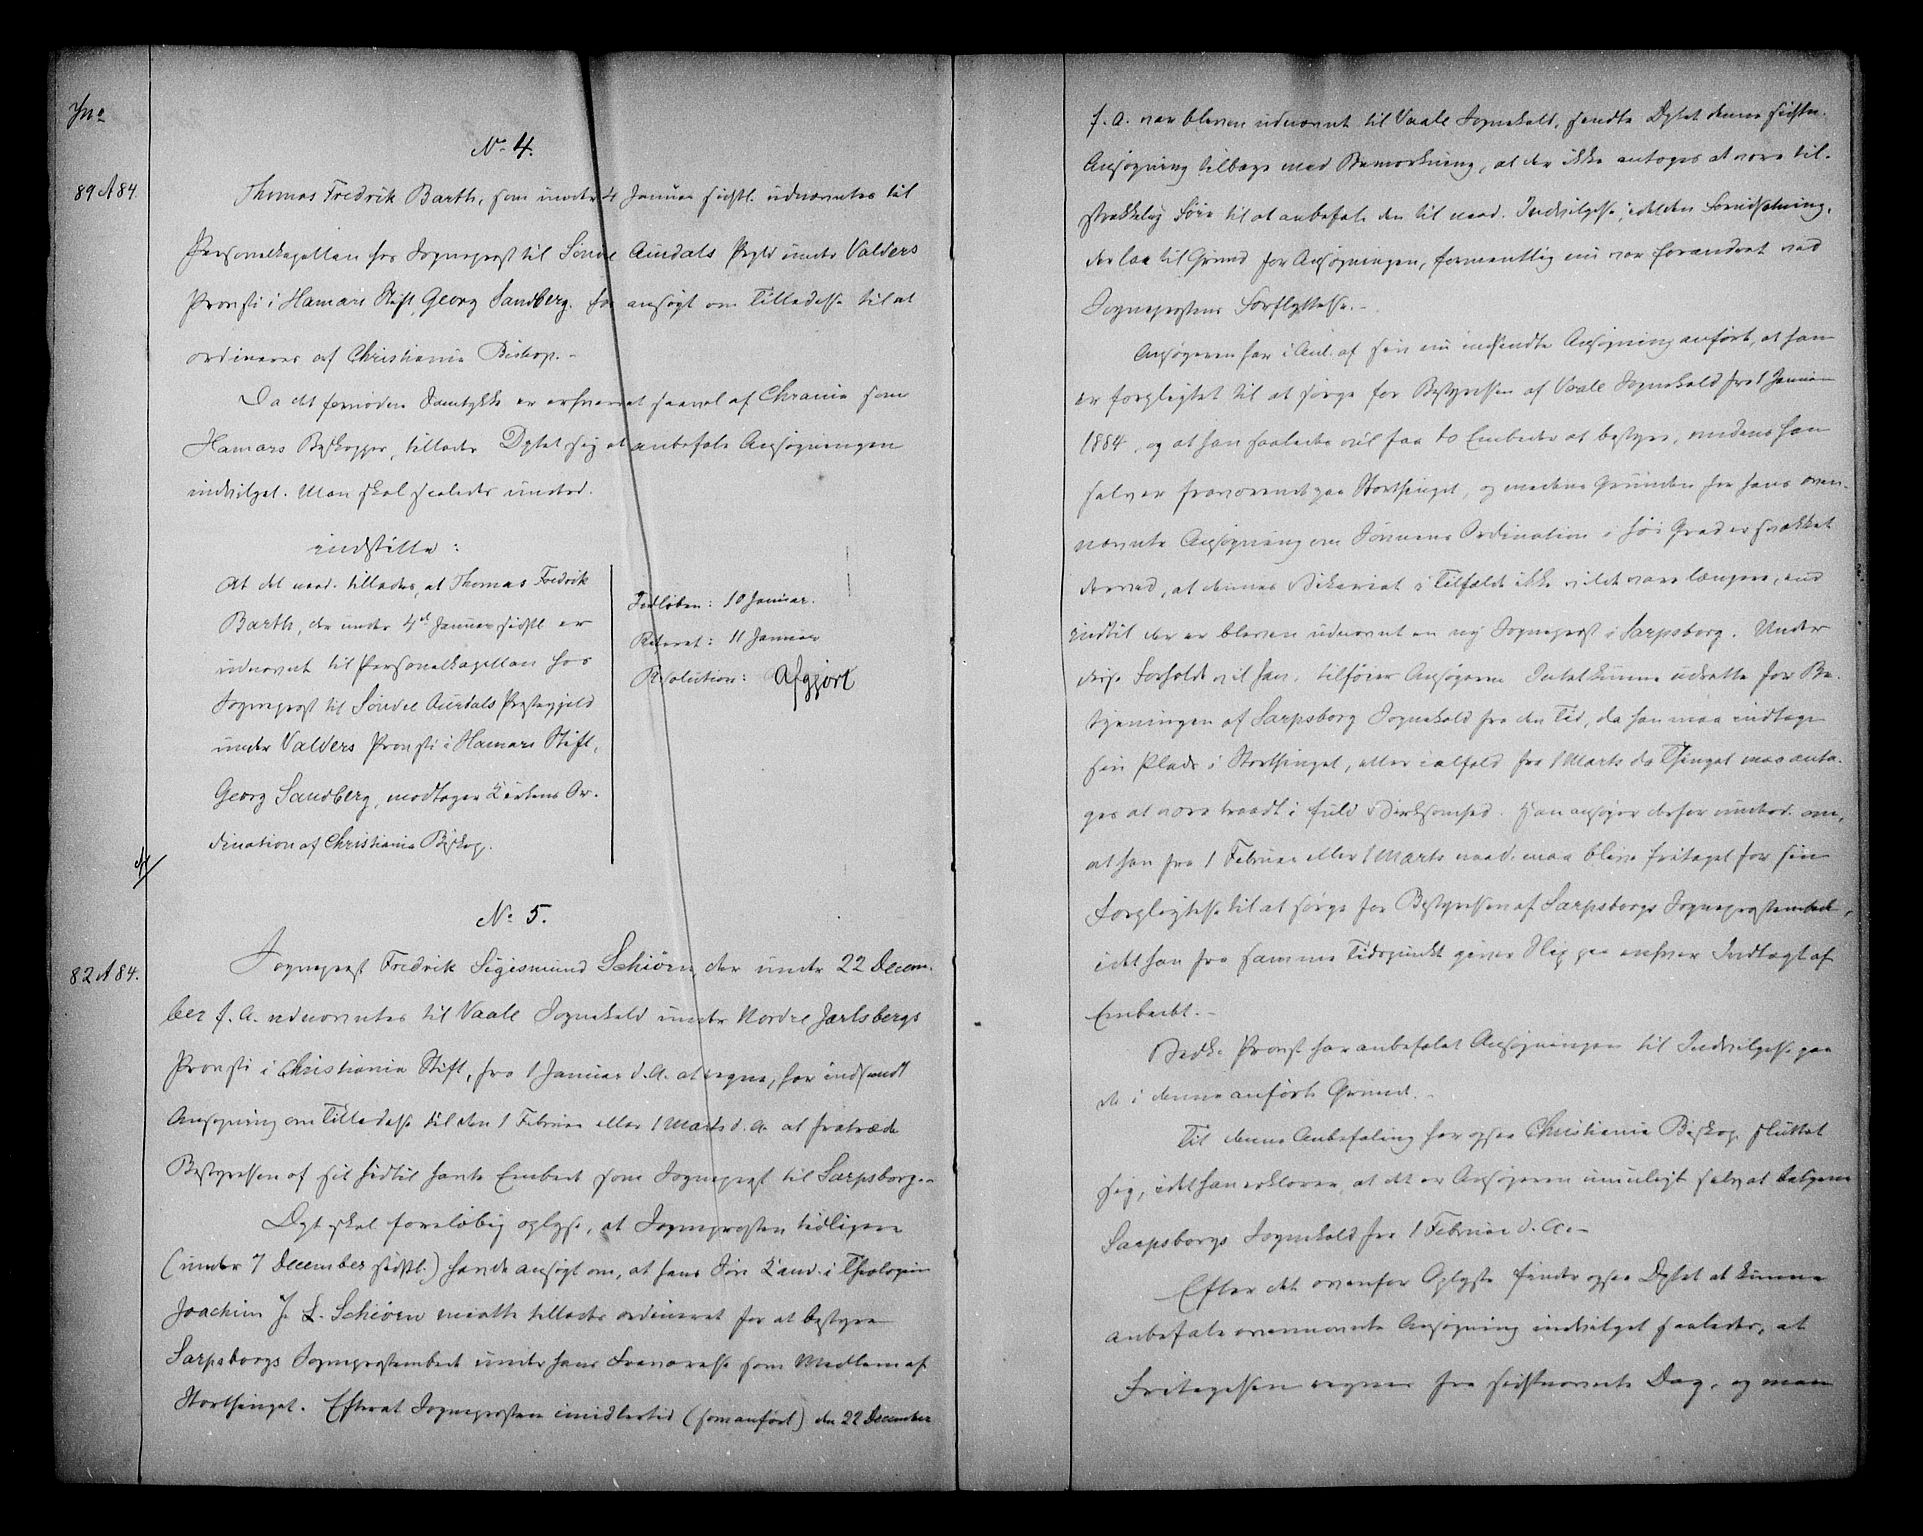 Jno
No 4.
89 A 84.
Thomas Fredrik Barth, som under 4 Januar sidstl. udnævntes til
Personelkapellan hos Sognepræst til Søndre Aurdals Pgld under Valders
Provsti i Hamars Stift, Georg Sandberg, har ansøgt om Tilladelse til at
ordineres af Christiania Biskop.-
Da det fornødne Samtykke er erhvervet saavel af Chrania som
Hamars Biskopper, tillader Dptet sig at anbefale Ansøgningen
indvilget. Man skal saaledes underd.
indstille:
At det naad. tillades, at Thomas Fredrik
Barth, der under 4de Januar sidstl. er
udnævnt til Personelkapellan hos
Sognepræst til Søndre Aurdals Præstegjeld
under Valders Provsti i Hamars Stift,
Georg Sandberg, modtager Kirkens Or-
dination af Christiania Biskop.
Indløben: 10 Januar.
Refereret: 11 Januar
Resolution: Afgjort
No 5.
82 A 84.
Sognepræst Fredrik Sigismund Schiørn, der under 22 Decem-
ber f. A. udnævntes til Vaale Sognekald under Nordre Jarlsbergs
Provsti i Christiania Stift, fra 1 Januar d. A. at regne, har indsendt
Ansøgning om Tilladelse til den 1 Februar eller 1 Marts d. A. at fratræde
Bestyrelsen af sit hidtil havte Embede som Sognepræst til Sarpsborg.-
Dpt skal foreløbig oplyse, at Sognepræsten tidligere
(under 7 December sidstl.) havde ansøgt om, at hans Søn Cand. i Theologien
Joachim F. L. Schiørn maatte tillades ordineret for at bestyre
Sarpsborgs Sognepræstembede under hans Fraværelse som Medlem af
Storthinget. Efterat Sognepræsten imidlertid (som anført) den 22 December
f. A. var bleven udnævnt til Vaale Sognekald, sendte Dptet denne sidste
Ansøgning tilbage med Bemærkning, at der ikke antoges at være til-
strækkelig Føie til at anbefale den til naad. Indvilgelse, idet den Forudsætning,
der laa til Grund for Ansøgningen, formentlig nu var forandret ved
Sognepræstens Forflyttelse.-
Ansøgeren har i Anl. af sin nu indsendte Ansøgning anført, at han
er forpligtet til at sørge for Bestyrelsen af Vaale Sognekald fra 1 Januar
1884, og at han saaledes vil faa to Embeder at bestyre, medens han
selv er fraværende paa Storthinget, og medens Grunden for hans oven-
nævnte Ansøgning om Sønnens Ordination i høi Grad er svækket
derved, at dennes Vikariat i Tilfælde ikke vilde vare længere, end
indtil der er bleven udnævnt en ny Sognepræst i Sarpsborg. Under
disse Forholde vil han, tilføier Ansøgeren Intet kunne udrette for Be-
tjeningen af Sarpsborg Sognekald fra den Tid, da han maa indtage
sin Plads i Storthinget, eller ialfald fra 1 Marts da Thinget maa anta-
ges at være traadt i fuld Virksomhed. Han ansøger derfor underd. om,
at han fra 1 Februar eller 1 Marts naad. maa blive fritaget for sin
Forpligtelse til at sørge for Bestyrelsen af Sarpsborgs Sognepræstembede,
idet han fra samme Tidspunkt giver Slip paa enhver Indtægt af
Embedet.-
Vedk. Provst har anbefalet Ansøgningen til Indvilgelse paa
de i denne anførte Grunde.-
Til denne Anbefaling har ogsaa Christiania Biskop sluttet
sig, idet han erklærer, at det er Ansøgeren umuligt selv at betjene
Sarpsborgs Sognekald fra 1 Februar d. A.-
Efter det ovenfor Oplyste finder ogsaa Dptet at kunne
anbefale ovennævnte Ansøgning indvilget saaledes, at
Fritagelsen regnes fra sidstnævnte Dag, og man